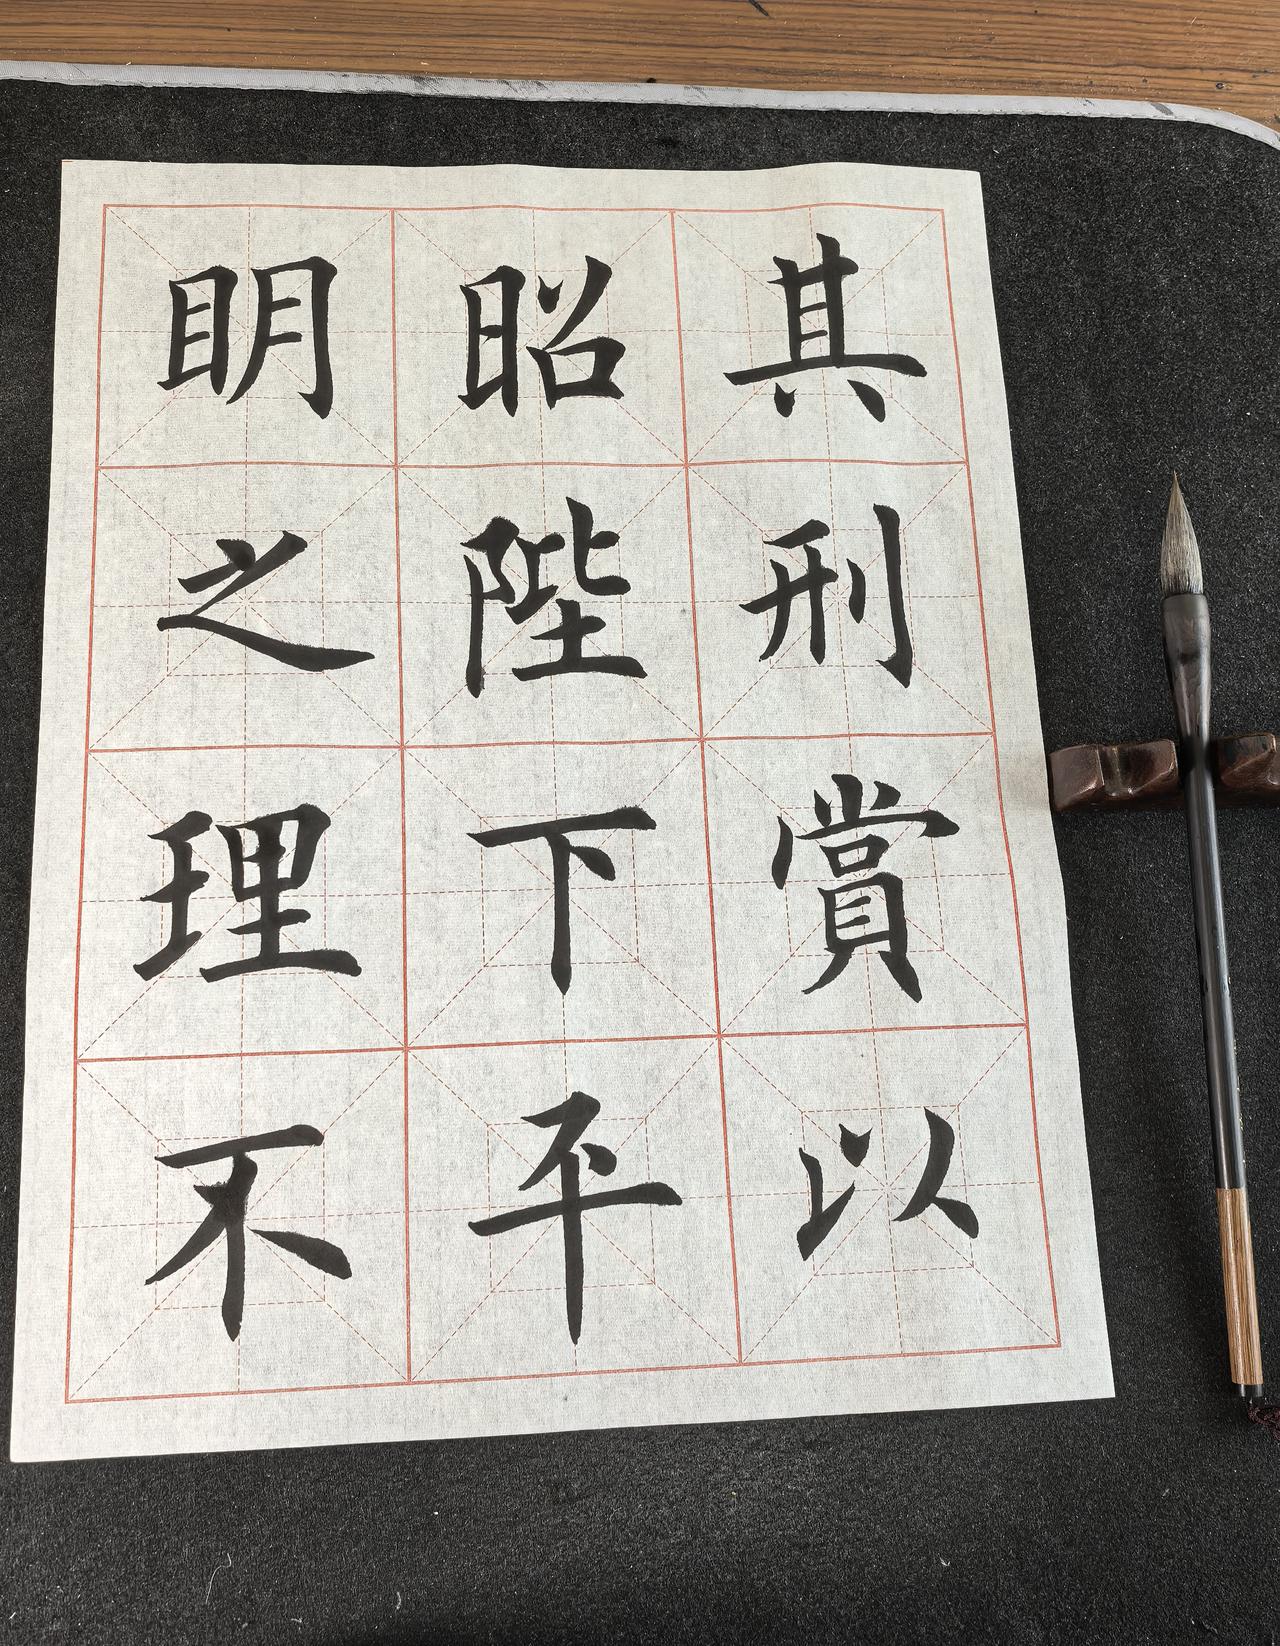 其刑賞以
昭陛下平
明之理不